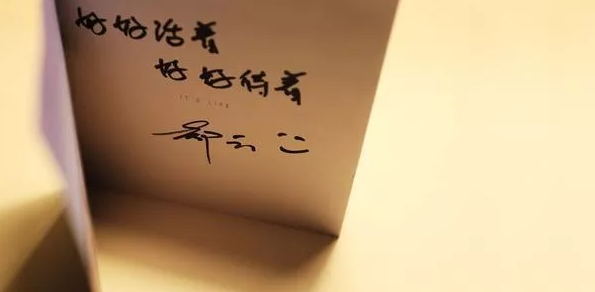 好好活着
好好待着
IT'S LIFE